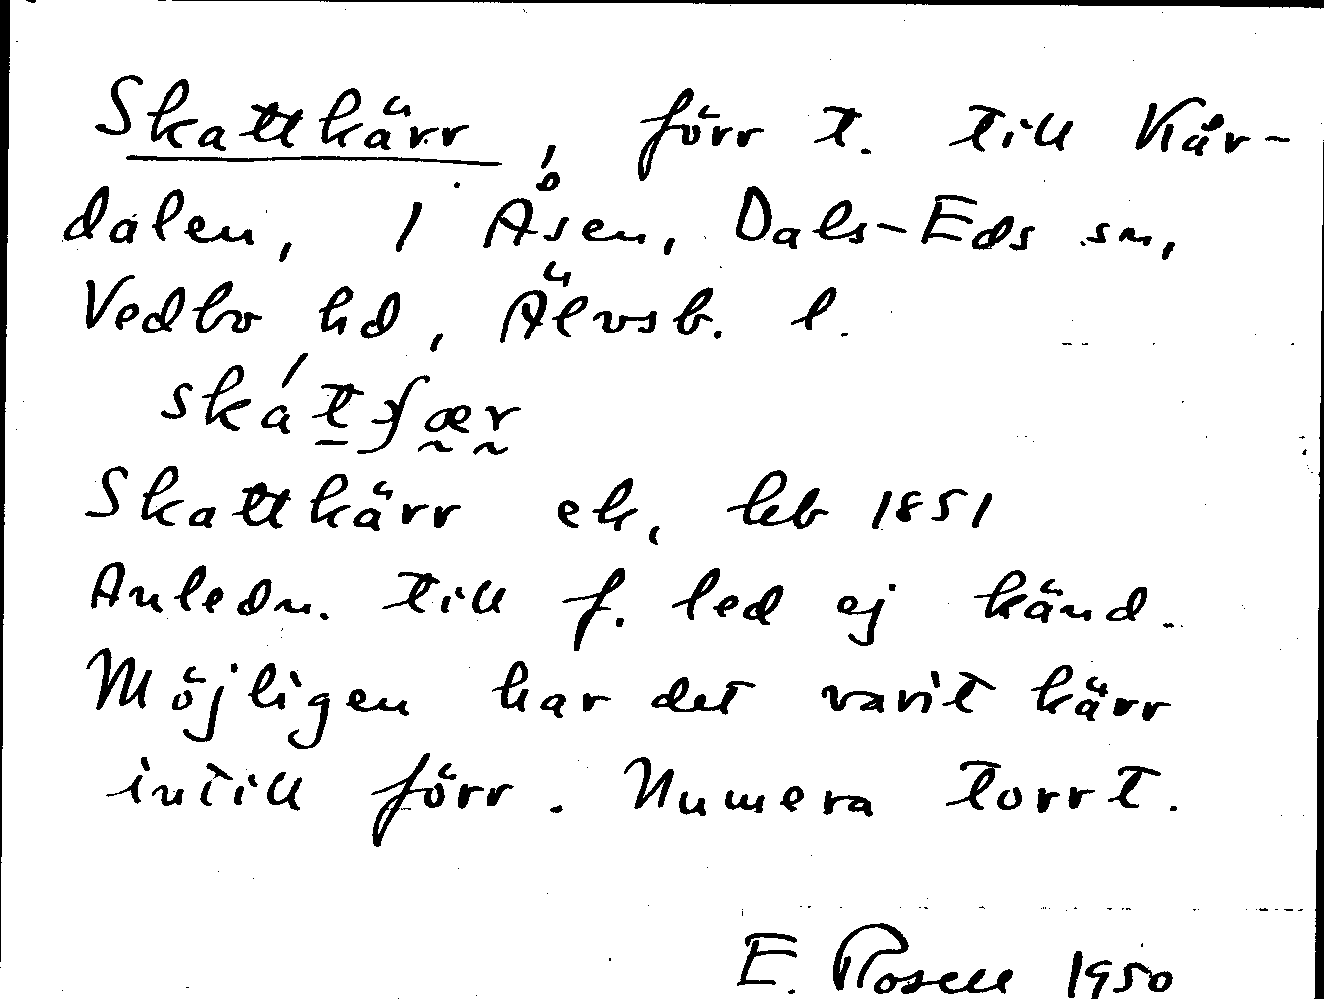 Skattkärr, förr t. till Kår-
dalen, 1 Åsen, Dals-Eds sn,
Vedbo hd, Älvsb. l.
Skattkärr ek, hfb 1851
Anledn. till f. led ej känd.
Möjligen har det varit kärr
intill förr. Numera torrt.
E. Rosell 1950